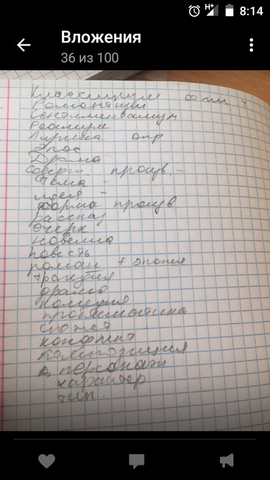 8:14
Вложения
36 из 100
Классицизм
Романтизм
Сентиментализм
Реализм
Лирика опр
Эпос
Драма
Тема -
идея -
форма произв
рассказ
очерк
новелла
повесть
роман + эпопея
трагедия
драма
комедия
проблематика
сюжет
конфликт
композиция
персонаж
характер
тип